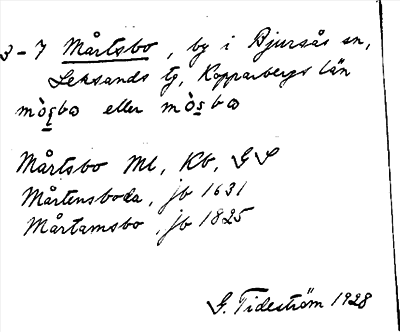 3-7 Mårtsbo, by i Bjursås sn,
Leksands tg, Kopparbergs län
eller
Mårtsbo Ml, Kb, GS
Mårtensboda, jb 1631
Mårtamsbo, jb 1825
G. Tideström 1928